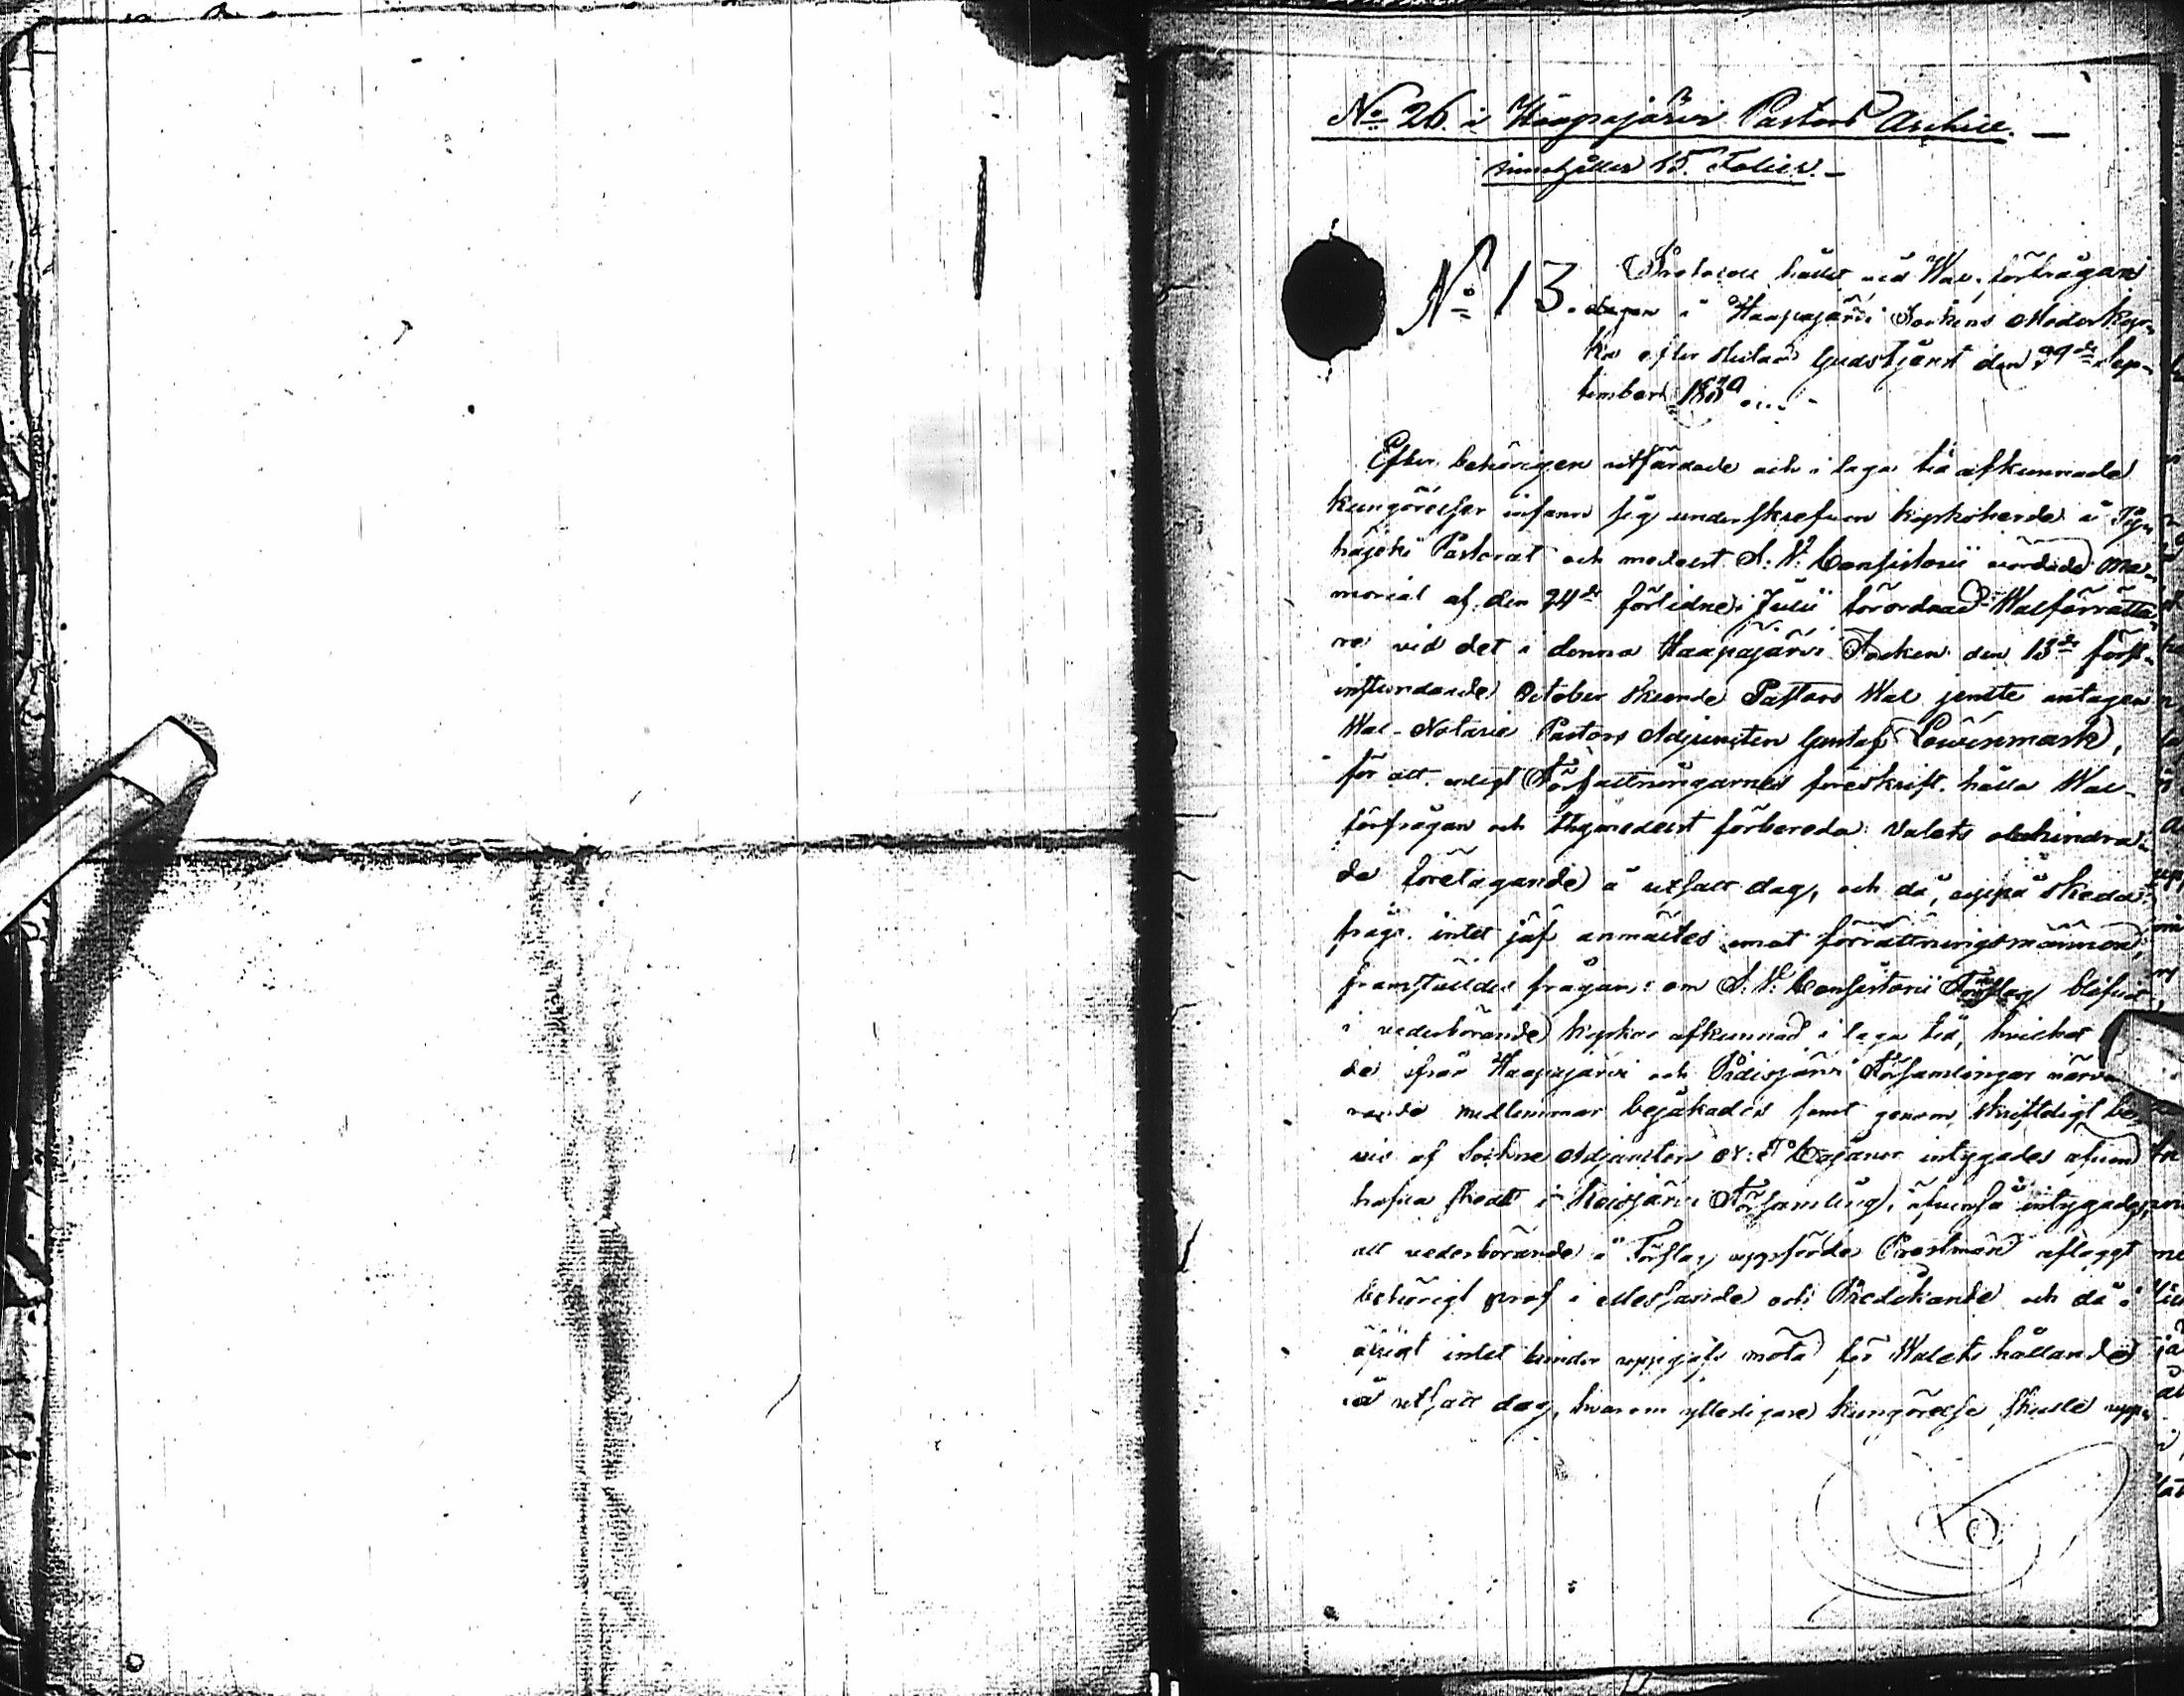 No 26. i Haapajärvi Pastors Archive.
innehåller 15. Folier.
No 13.
Protocoll hållet vid Wal-förfrågan
dagen i Haapajärvi Sockens Moderkyr-
ka efter slutad Gudstjenst den 29de Sep-
tember
Efter behörigen utfärdade och i laga tid afkunnade
kungörelser infann sig underskrefven kyrkoherde i Py-
häjoki Pastorat och medelst S: V: Consistorii vördade Me-
morial af den 24de förlidne Julii förordnad Walförrätta-
re vid det i denna Haapajärvi Socken den 13de först-
instundande October skeende Pastors Wal jemte antagen
Wal-Notarie Pastors Adjuncten Gustaf Löwenmark,
för att enligt Författningarnes föreskrift hålla Wal-
förfrågan och thymedelst förbereda Valets obehindra-
de företagande å utsatt dag, och då, uppå skedd
fråga intet jäf anmältes emot förrättningsmännen,
framställdes frågan: om S: V: Consistorii Förslag blifvit
i vederbörande kyrkor afkunnad i laga tid, hvilket
de ifrån Haapajärvi och Pidisjärvi Församlingar närva
rande medlemmar bejakades samt genom skriftligt be-
vis af Sockne Adjuncten intygades äfven
hafva skedt i Reisjärvi Församling, äfvenså intygades,
att vederbörande å Förslag uppförde Prestmän aflaggt
behörigt prof i Messande och Predikande och då i
öfrigt intet hinder uppgafs möta för Walets hållande
å utsatt dag, hvarom ytterligare kungörelse skulle upp-